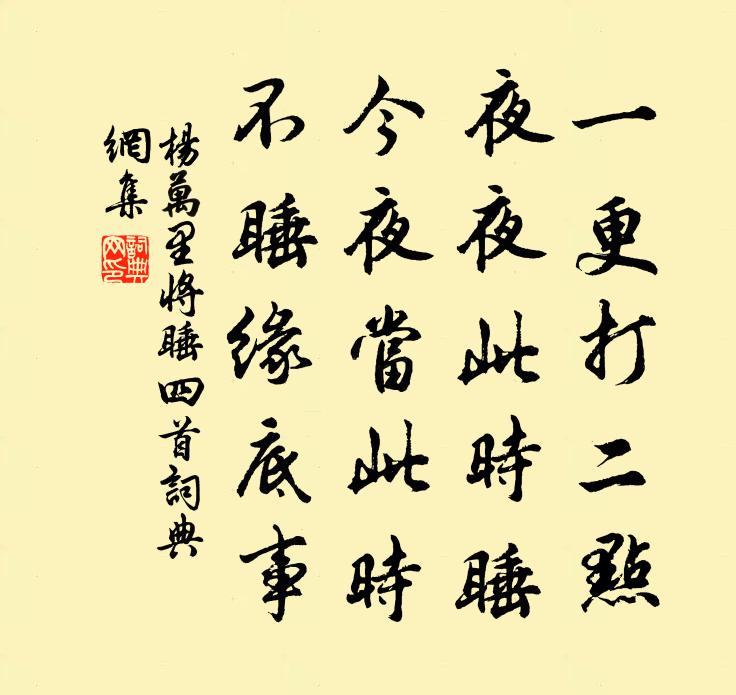 一更打二點
夜夜此時睡
今夜當此時
不睡緣底事
楊萬里將睡四首詞典
網集
詞典
网印